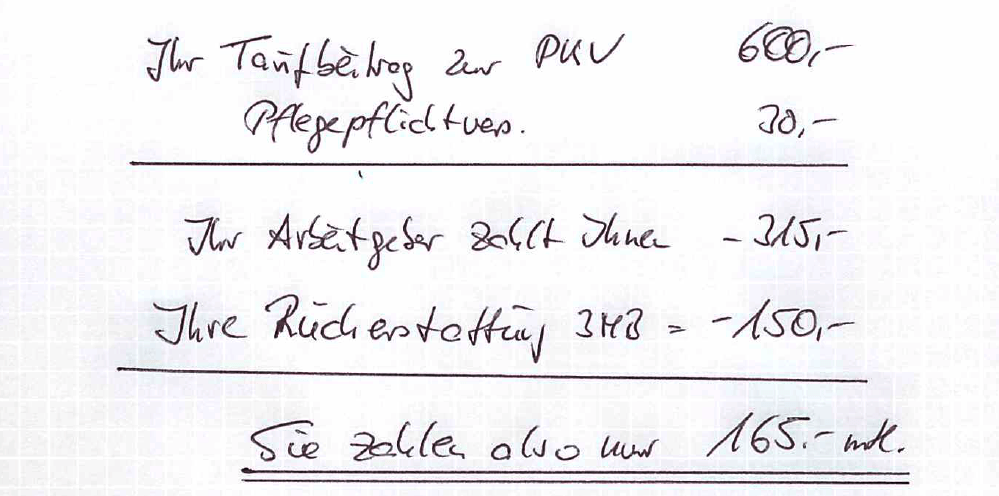 Ihr Tarifbeitrag zur PKV 600,-
Pflegepflichtvers. 30,-
Ihr Arbeitgeber zahlt Ihnen - 315,-
Ihre Rückerstattung 3MB = -150,-
Sie zahlen also nur 165.- mtl.